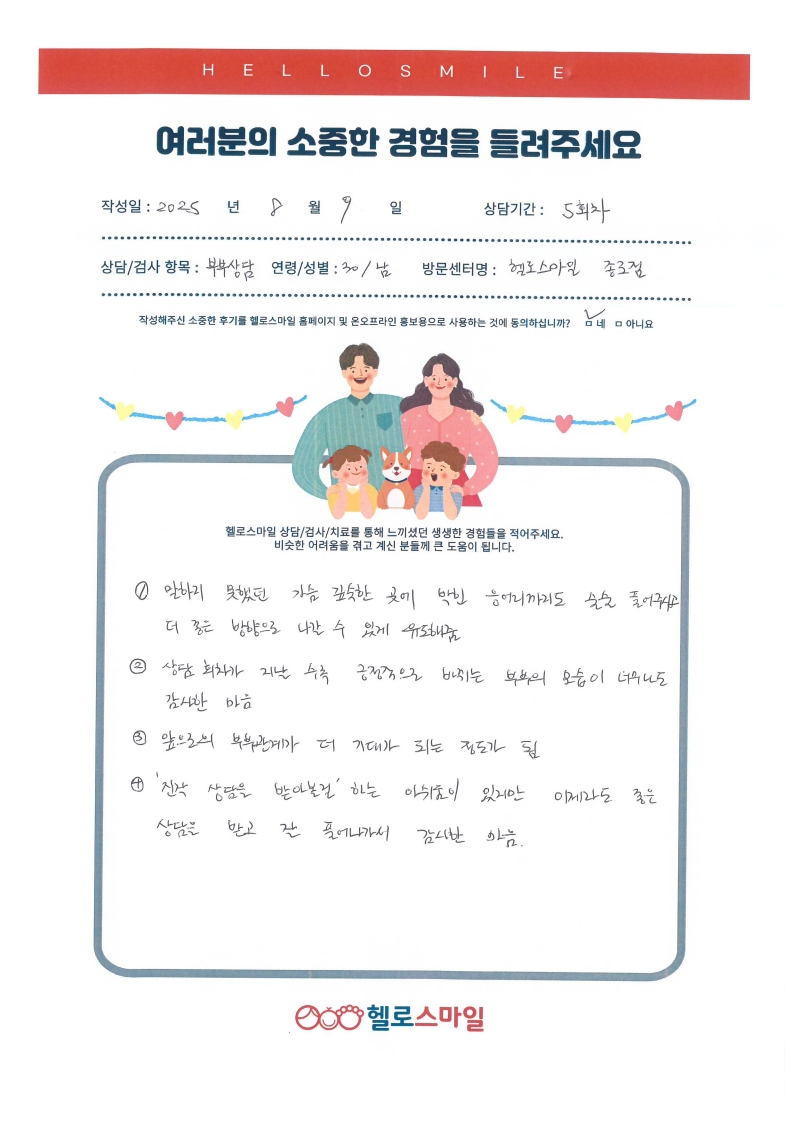 HELLOSMILE
여러분의 소중한 경험을 들려주세요
작성일 : 2025 년 8 월 9 일 상담기간 : 5회차
상담/검사 항목 : 부부상담 연령/성별 : 30/남 방문센터명 : 헬로스마일 종로점
작성해주신 소중한 후기를 헬로스마일 홈페이지 및 온오프라인 홍보용으로 사용하는 것에 동의하십니까? ☑ 네 □ 아니요
헬로스마일 상담/검사/치료를 통해 느끼셨던 생생한 경험들을 적어주세요.
비슷한 어려움을 겪고 계신 분들께 큰 도움이 됩니다.
① 말하지 못했던 가슴 깊숙한 곳에 박힌 응어리까지도 술술 풀어주시고
더 좋은 방향으로 나갈 수 있게 유도해줌
② 상담 회차가 지날 수록 긍정적으로 바뀌는 부부의 모습이 너무나도
감사한 마음
③ 앞으로의 부부관계가 더 기대가 되는 정도가 됨
④ '진작 상담을 받아볼걸' 하는 아쉬움이 있지만 이제라도 좋은
상담을 받고 잘 풀어나가서 감사한 마음.
헬로스마일